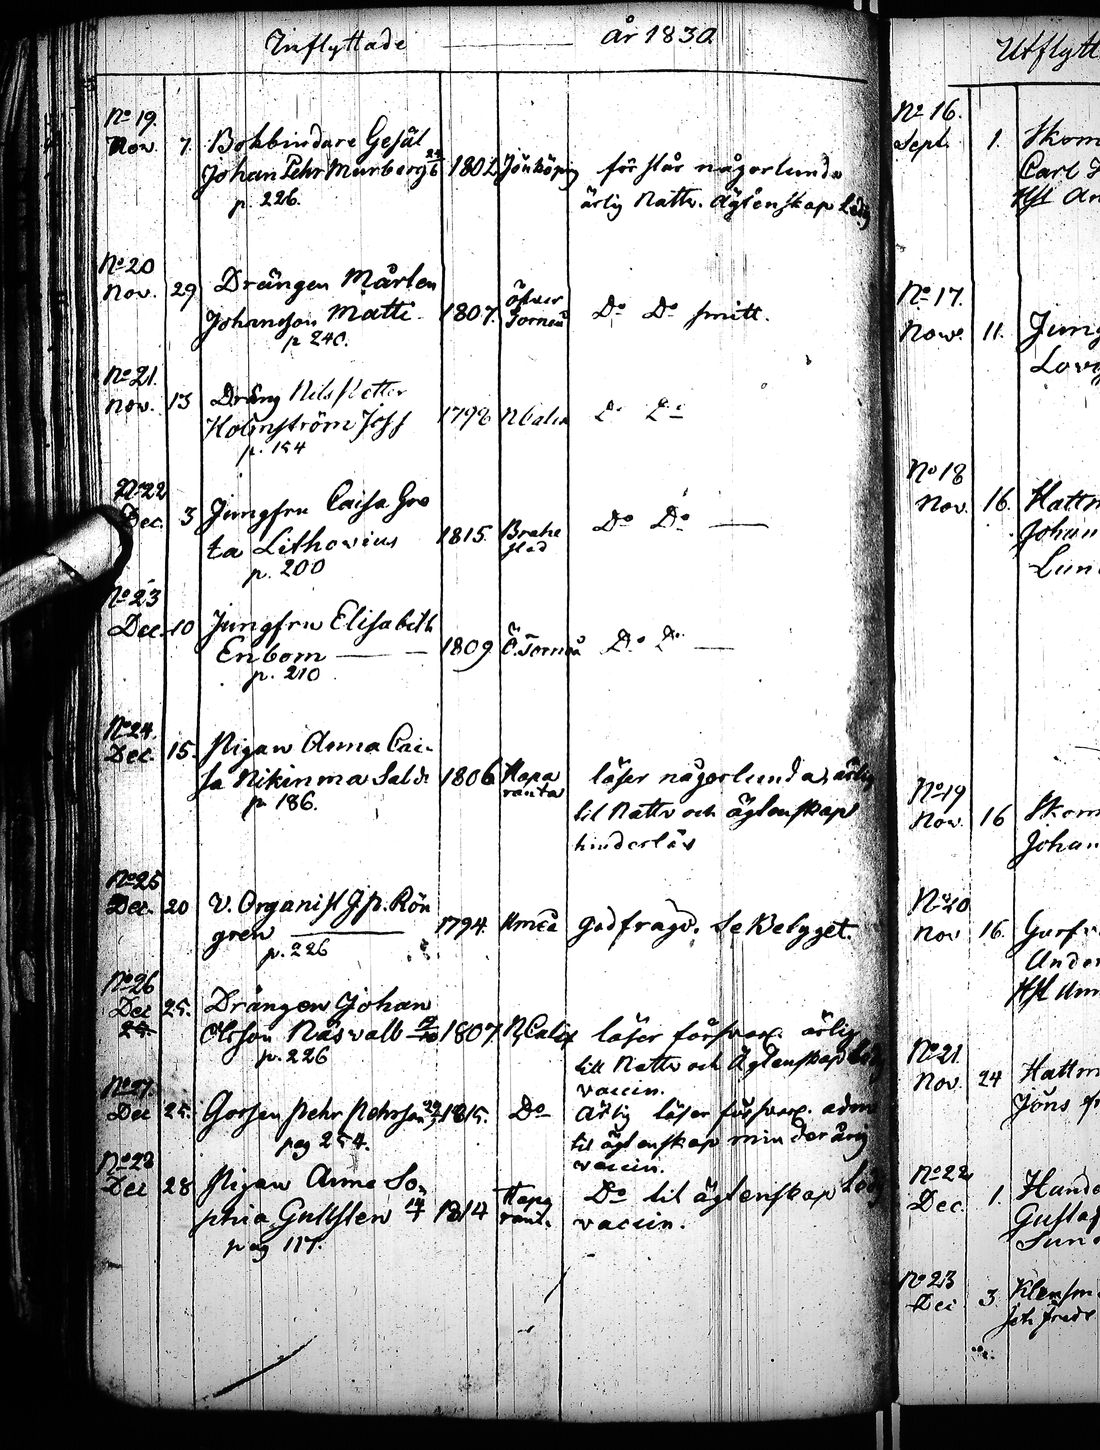 Inflyttade år 1830
No 19.
Nov. 7. Bokbindare Gesäl
Johan Pehr Murberg 1802 Jönköping förstår någorlunda
p. 226. ärlig Nattv. Ägtenskap Ledig
No 20
Nov. 29 Drängen Mårten
Johansson Matti 1807. Öfver Torneå Do Do smitt.
p 240.
No 21.
Nov. 13 Dräng Nils Petter
Holmström 1792 NCalix Do Do
p. 154
No 22
Dec. 3 Jungfru Caisa Gre
ta Lithovius 1815. Brahe stad Do Do —
p. 200
No 23
Dec. 10 Jungfru Elisabeth
Enbom — — 1809 Ö.Torneå Do Do —
p. 210
No 24.
Dec. 15. Pigan Anna Cai-
sa Nikinmaa 1806 Hapa ranta läser någorlunda, ärlig
p 186. til Nattv och ägtenskap
hinderlös
No 25
Dec. 20 V. Organist J.P. Rön
gren — 1794. Umeå godfrägd. Se Betyget.
p. 226
No 26
Dec 25. Drängen Johan
Olsson Näsvall 1807. NCalix läser försvarl. ärlig
p. 226 till Nattv och Ägtenskap
vaccin.
No 27.
Dec 25. Gossen Pehr Pehrsson 1815. Do Ärlig läser försvarl.
pag 254. til ägtenskap minderårig
vaccin.
No 28
Dec 28 Pigan Anna So-
phia Gullsten 1814 Hapa rant. Do til ägtenskap Ledig
pag 117. vaccin.
Utflytt
No 16.
Sept. 1. Skom
Carl
No 17.
Nov. 11. Jung
Lov
No 18
Nov. 16. Hattm
Johan
Lun
No 19
Nov. 16 Skom
Johan
No 20
Nov 16.
Ander
No 21
Nov. 24 Hattm
Jöns
No 22
Dec. 1. Hand
Gustaf
Sun
No 23
Dec 3